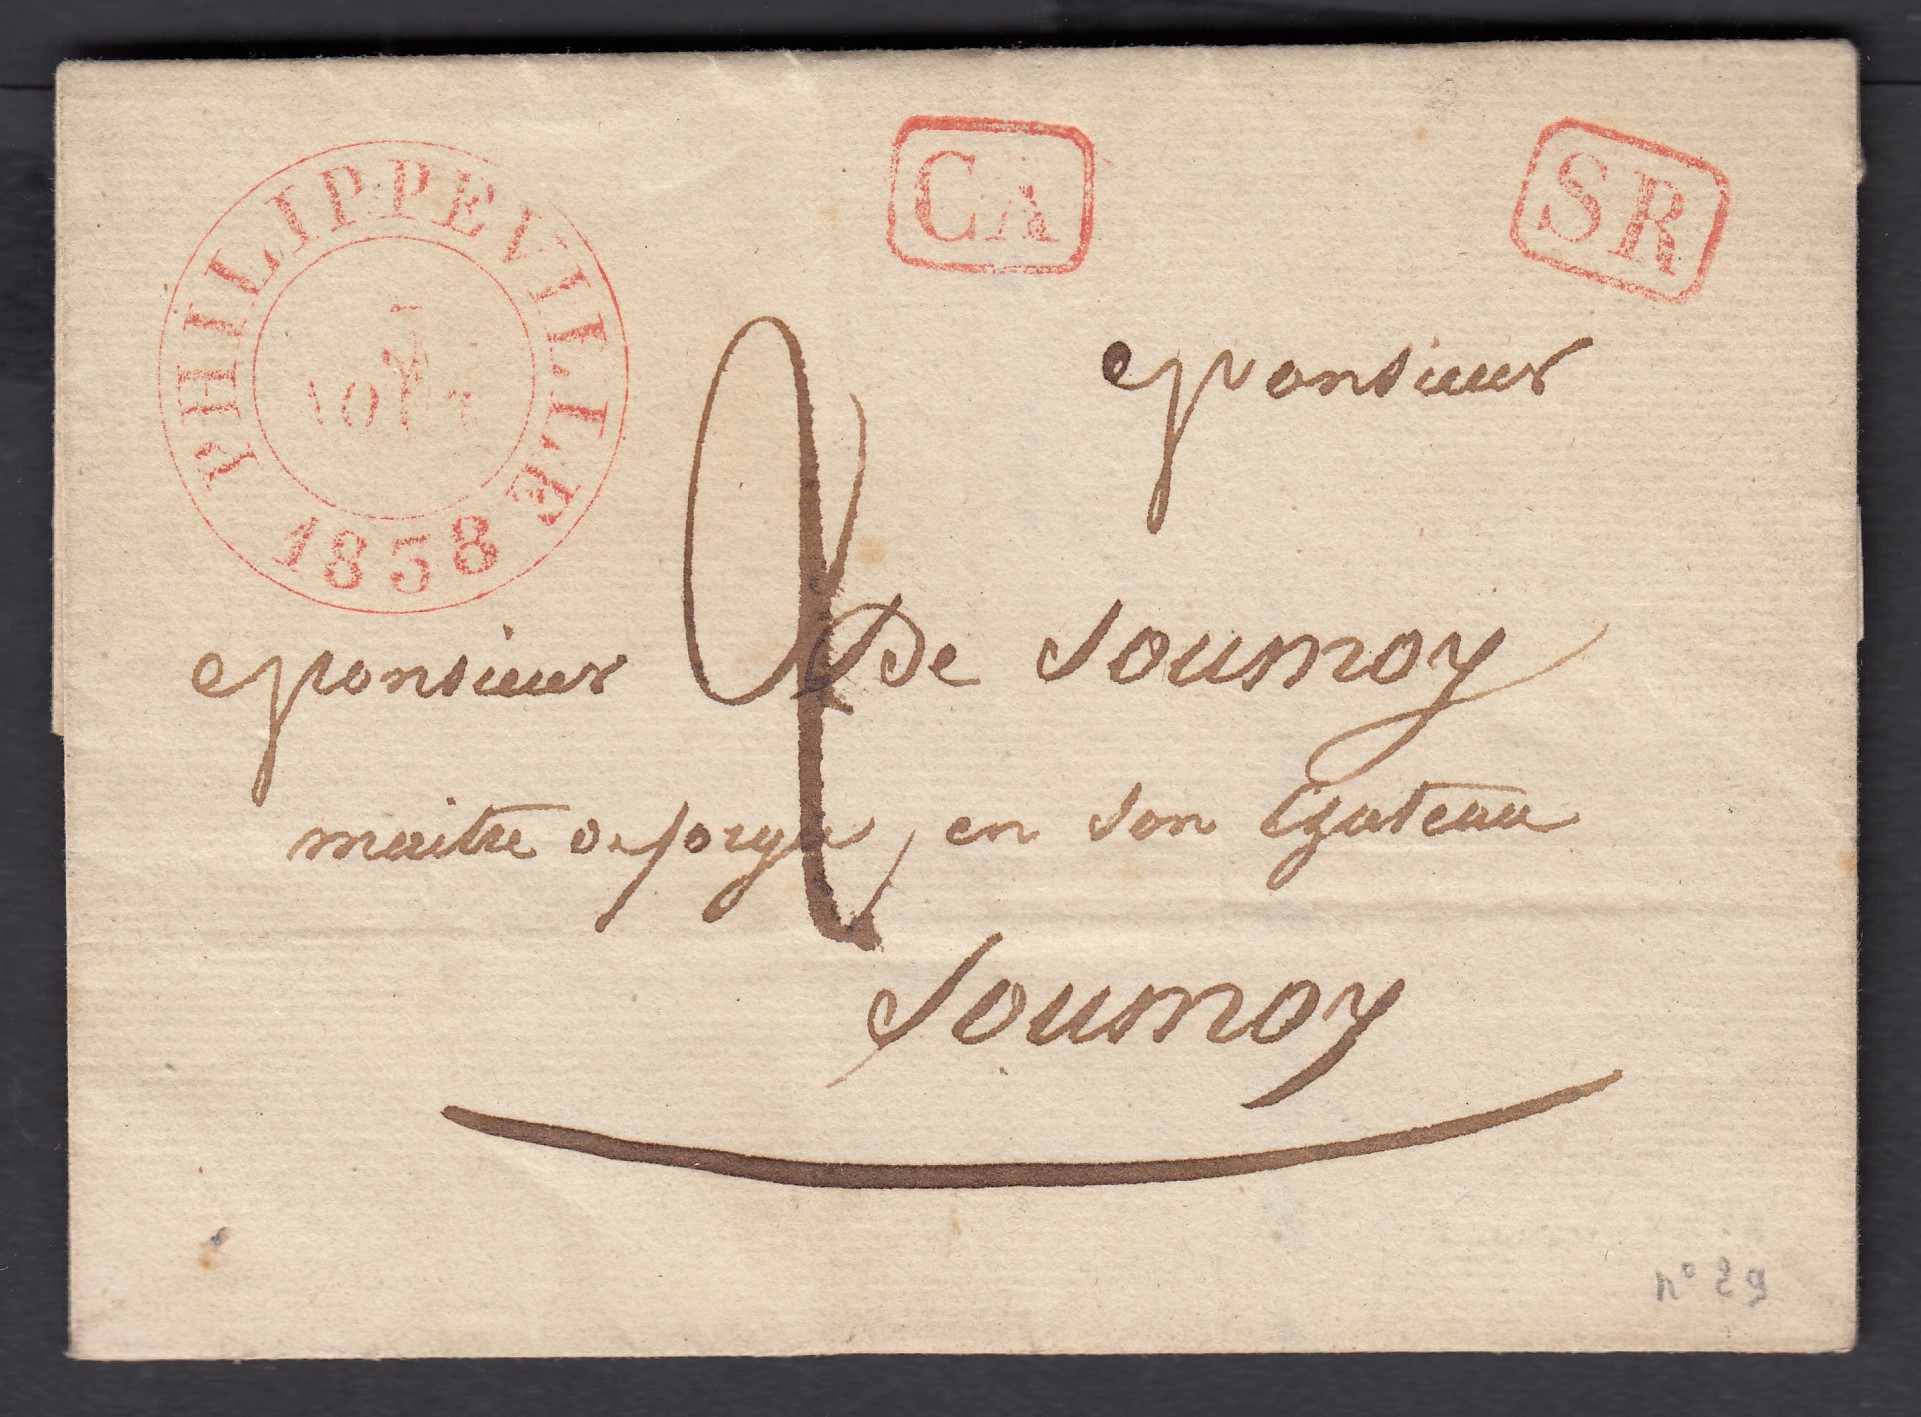 PHILIPPEVILLE
AOUT
1838
CA
SR
Monsieur
Monsieur De Soumoy
maitre de forge, en son Chateau
Soumoy
n° 29